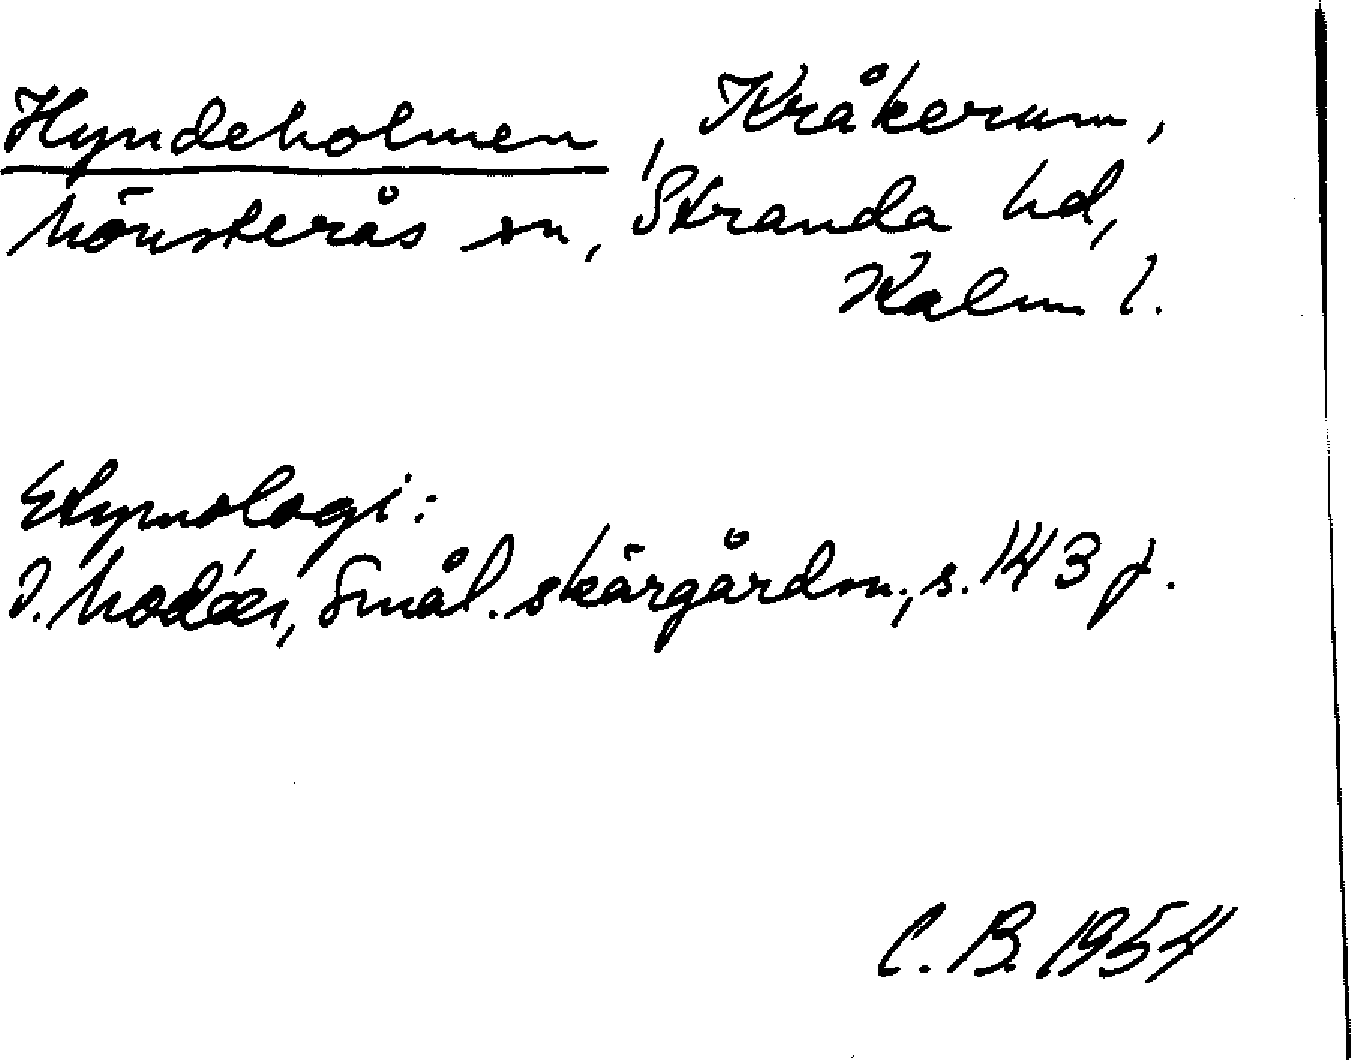 Hyndeholmen, Kråkerum,
Mönsterås sn, Stranda hd,
Kalm l.
Etymologi:
I. Modéer, Smål. skärgårdsn., s. 143 f.
C. B. 1954